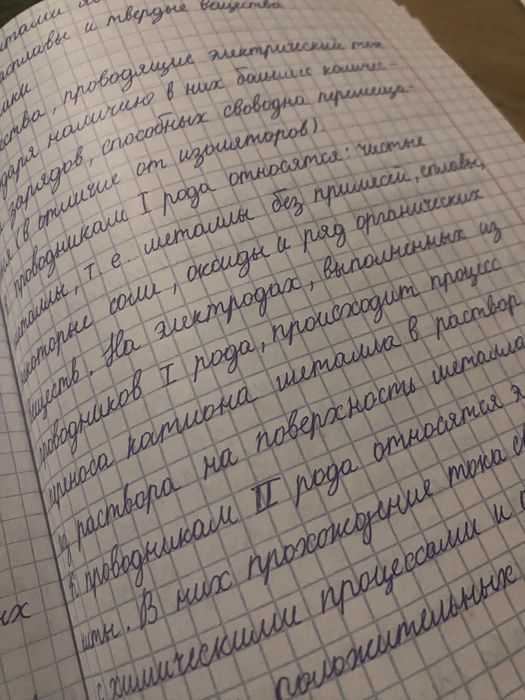 сплавы и твердые вещества
проводящие электрический ток
наличию в них большего количе-
зарядов, способных свободна перемеща-
(в отличие от изоляторов).
проводникам I рода относятся: чистые
металлы, т. е. металлы без примесей, сплавы,
некоторые соли, оксиды и ряд органических
веществ. На электродах, выполненных из
проводников I рода, происходит процесс
переноса катиона металла в раствор
из раствора на поверхность металла
К проводникам II рода относятся
В них прохождение тока
с химическими процессами и
положительных
ых